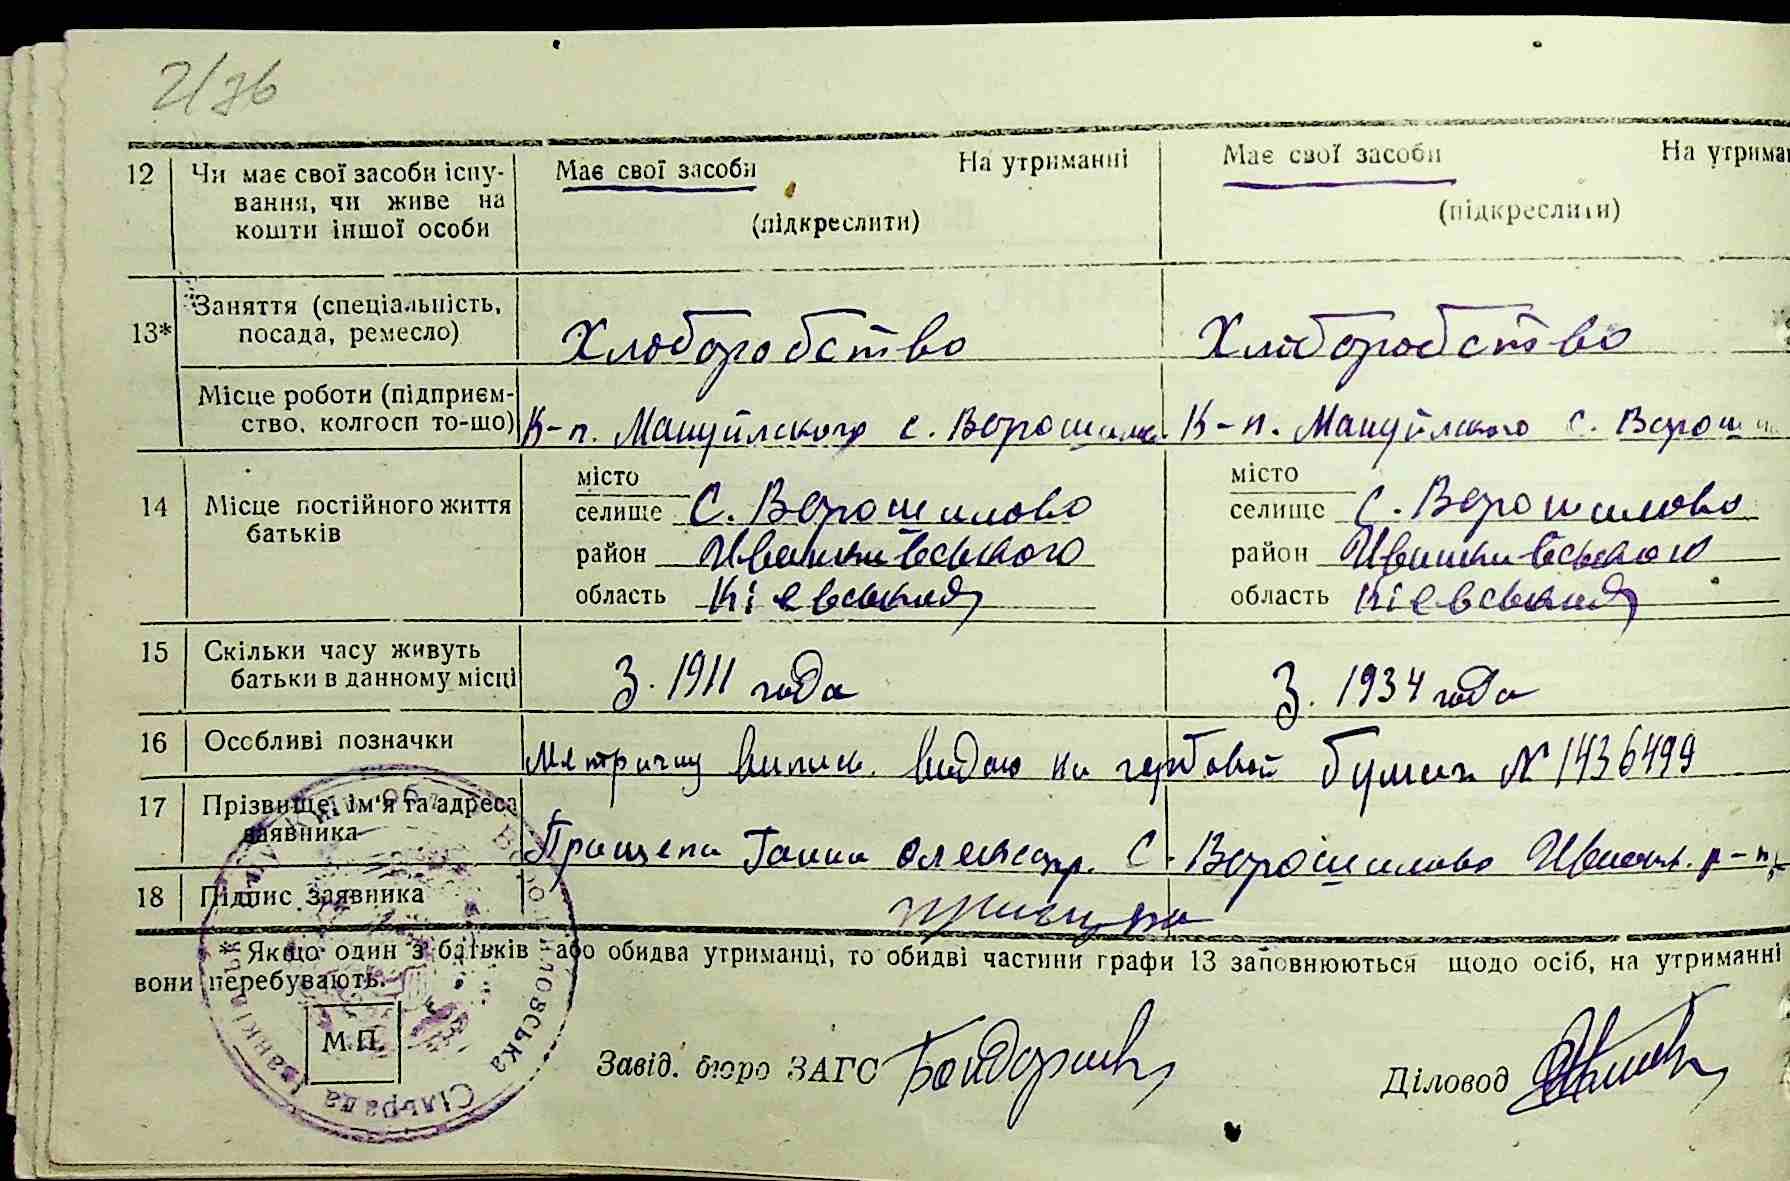 2/36
12 Чи має свої засоби існу- Має свої засоби На утриманні Має свої засоби На утриман
вання, чи живе на (підкреслити) (підкреслити)
кошти іншої особи
13* Заняття (спеціальність, посада, ремесло) Хлоборобство Хлоборобство
Місце роботи (підприєм-
ство, колгосп то-що) К-п. Мануйлского с. Верошилов К-п. Мануйлского с. Верош
14 Місце постійного життя батьків
місто місто
селище С. Верошилово селище С. Верошилово
район Иваньківського район Иваньківського
область Кієвськая область Кієвськая
15 Скільки часу живуть
батьки в данному місці З. 1911 года З. 1934 года
16 Особливі позначки Метричну выпис. видано на гербовой бумаги № 1436499
17 Прізвище, ім'я та адреса
заявника Прищепа Ганна Олександр. С. Верошилово р-н
18 Підпис заявника
* Якщо один з батьків або обидва утриманці, то обидві частини графи 13 заповнюються щодо осіб, на утриманні
вони перебувають.
М.П.
Завід. бюро ЗАГС
Діловод
Сільрада